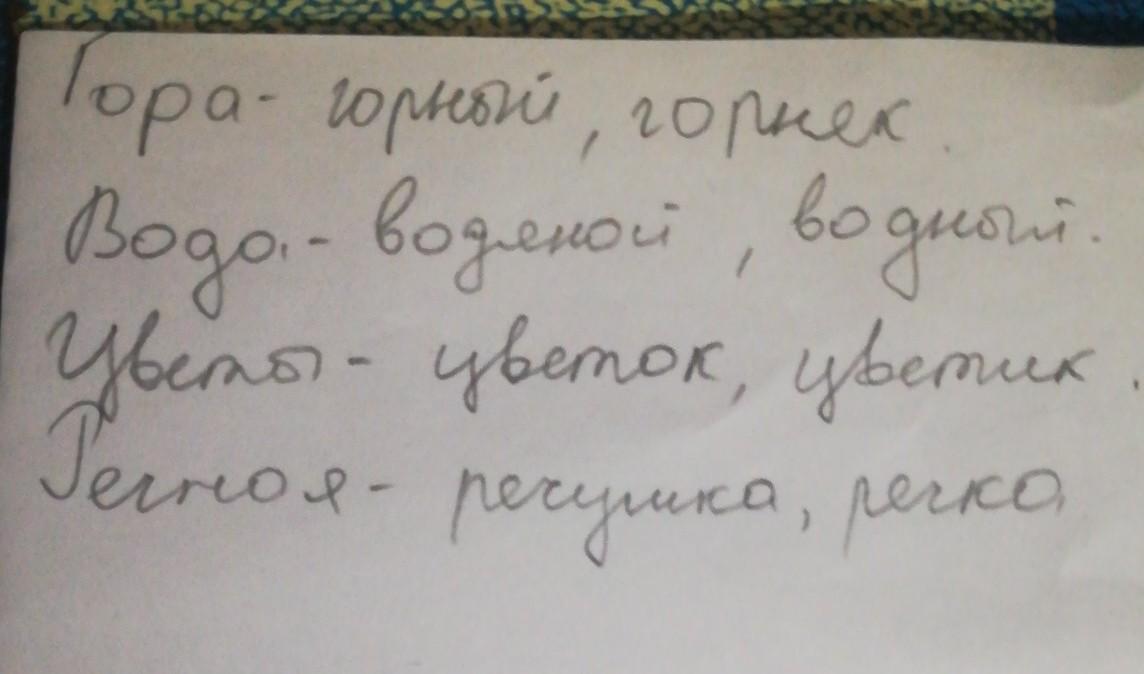 Гора- горный, горняк.
Вода - водяной, водный.
Цветы - цветок, цветик.
Речная - речушка, речка